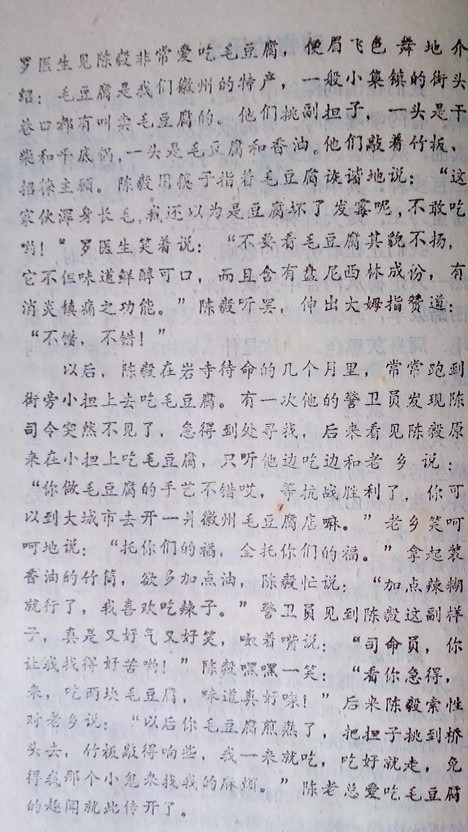 罗医生见陈毅非常爱吃毛豆腐，便眉飞色舞地介
绍：毛豆腐是我们徽州的特产，一般小集镇的街头
巷口都有叫卖毛豆腐的。他们挑副担子，一头是干
柴和平底锅，一头是毛豆腐和香油。他们敲着竹板，
招徕主顾。陈毅用筷子指着毛豆腐诙谐地说：“这
家伙浑身长毛，我还以为是豆腐坏了发霉呢，不敢吃
哟！”罗医生笑着说：“不要看毛豆腐其貌不扬，
它不但味道鲜醇可口，而且含有盘尼西林成份，有
消炎镇痛之功能。”陈毅听罢，伸出大姆指赞道：
“不错，不错！”
以后，陈毅在岩寺待命的几个月里，常常跑到
街旁小担上去吃毛豆腐。有一次他的警卫员发现陈
司令突然不见了，急得到处寻找，后来看见陈毅原
来在小担上吃毛豆腐，只听他边吃边和老乡说：
“你做毛豆腐的手艺不错哎，等抗战胜利了，你可
以到大城市去开一爿徽州毛豆腐店嘛。”老乡笑呵
呵地说：“托你们的福，全托你们的福。”拿起装
香油的竹筒，欲多加点油，陈毅忙说：“加点辣糊
就行了，我喜欢吃辣子。”警卫员见到陈毅这副样
子，真是又好气又好笑，噘着嘴说：“司令员，你
让我找得好苦哟！”陈毅嘿嘿一笑：“看你急得，
来，吃两块毛豆腐，味道真好味！”后来陈毅索性
对老乡说：“以后你毛豆腐煎熟了，把担子挑到桥
头去，竹板敲得响些，我一来就吃，吃好就走，免
得我那个小鬼来找我的麻烦。”陈老总爱吃毛豆腐
的趣闻就此传开了。